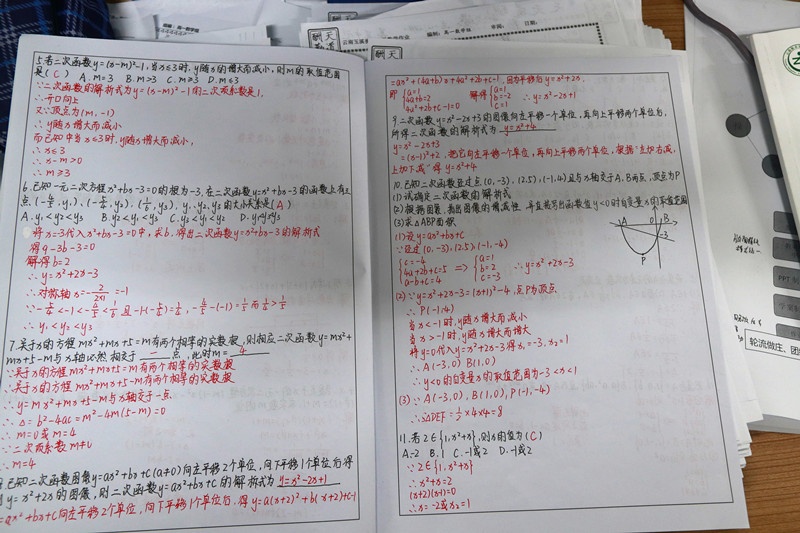 5.若二次函数y=(x-m)²-1,当x≤3时,y随x的增大而减小,则m的取值范围
是( C ) A.m=3 B.m>3 C.m≥3 D.m≤3
∵二次函数的解析式为y=(x-m)²-1的二次项系数是1,
∴开口向上
又∵顶点为(m,-1)
∴y随x增大而减小
而已知中当x≤3时,y随x增大而减小,
∴x≤3
∴x-m>0
∴m≥3
6.已知一元二次方程x²+bx-3=0的根为-3,在二次函数y=x²+bx-3的函数上有三
点,(-4/5,y₁),(-5/4,y₂),(1/6,y₃),y₁,y₂,y₃的大小关系是(A)
A.y₁<y₂<y₃ B.y₂<y₁<y₃ C.y₃<y₁<y₂ D.y₁<y₃<y₂
将x=-3代入x²+bx-3=0中,求b,得出二次函数y=x²+bx-3的解析式
得9-3b-3=0
解得b=2
∴y=x²+2x-3
∴对称轴x=-2/2×1=-1
∴y₁<y₂<y₃
7.关于x的方程mx²+mx+5=m有两个相等的实数根,则相应二次函数y=mx²+
mx+5-m与x轴必然相交于 一 点,此时m= 4
∵关于x的方程mx²+mx+5=m有两个相等的实数根
∴关于x的方程mx²+mx+5-m有两个相等的实数根
∴y=mx²+mx+5-m与x轴交于一点
∴△=b²-4ac=m²-4m(5-m)=0
∴m=0或m=4
∵二次项系数m≠0
∴m=4
已知二次函数图像y=ax²+bx+c(a≠0)向左平移2个单位,向下平移1个单位后得
y=x²+2x的图像,则二次函数y=ax²+bx+c的解析式为 y=x²-2x+1
=ax²+bx+c向左平移2个单位,向下平移1个单位后.得y=a(x+2)²+b(x+2)+c-1
=ax²+(4a+b)x+4a+2b+c-1,因为平移后y=x²+2x,
即 {a=1 4a+b=2 4a+2b+c-1=0 解得 {a=1 b=-2 c=1 ∴y=x²-2x+1
9.二次函数y=x²-2x+3的图像向左平移一个单位,再向上平移两个单位后,
所得二次函数的解析式为 y=x²+4
y=x²-2x+3
=(x-1)²+2,把它向左平移一个单位,再向上平移两个单位,根据"左加右减,
上加下减"得y=x²+4
10.已知二次函数经过点(0,-3),(2,5),(-1,-4)且与x轴交于A,B两点,顶点为P
(1)试确定二次函数的解析式
(2)根据图象,指出图像的增减性 并直接写出函数值y<0时自变量x的取值范围
(3)求△ABP面积
A O B
-3
P
(1)设y=ax²+bx+c
∵经过(0,-3),(2,5),(-1,-4)
{c=-4 4a+2b+c=5 a-b+c=4 => {a=1 b=2 c=-3 ∴y=x²+2x-3
(2)∵y=x²+2x-3=(x+1)²-4,点P为顶点
∴P(-1,-4)
当x<-1时,y随x增大而减小
当x>-1时,y随x增大而增大
将y=0代入y=x²+2x-3得x₁=-3,x₂=1
∴A(-3,0) B(1,0)
∴y<0的自变量x的取值范围为-3<x<1
(3)∵A(-3,0),B(1,0),P(-1,-4)
∴S△DEF=1/2×4×4=8
11.若2∈{1,x²+x},则x的值为(C)
A.-2 B.1 C.-1或2 D.-1或2
∵2∈{1,x²+x}
∴x²+x=2
(x+2)(x-1)=0
∴x=-2或x₂=1
轮流做庄、团